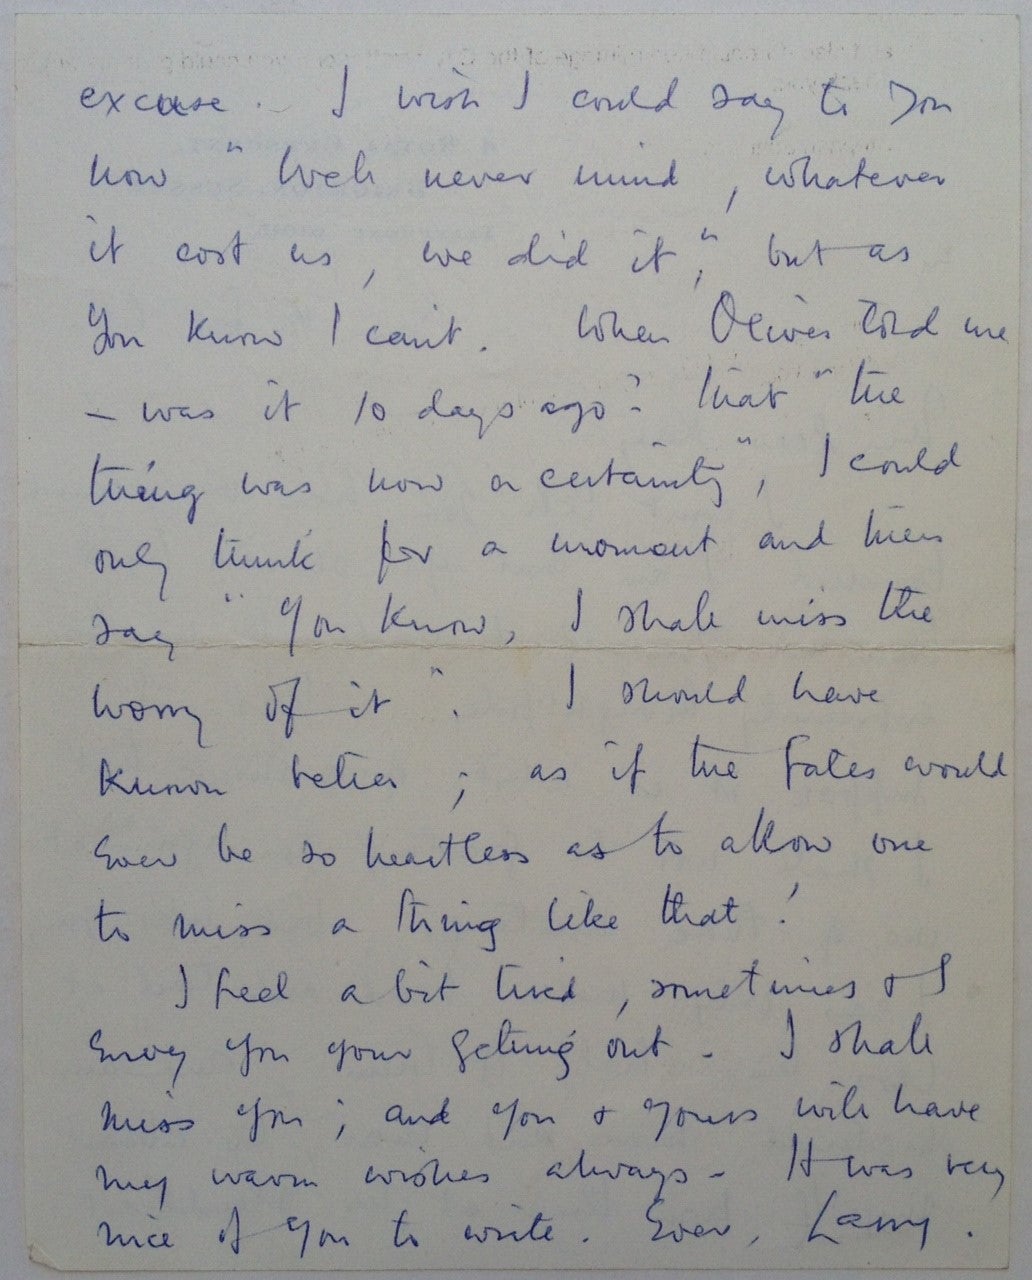 excuse. - I wish I could say to you
now "Well never mind, whatever
it cost us, we did it"; but as
you know I can't. When Oliver told me
- was it 10 days ago? that "the
thing was now a certainty", I could
only think for a moment and then
say "You know, I shall miss the
worry of it". I should have
known better; as if the fates would
ever be so heartless as to allow one
to miss a thing like that!
I feel a bit tired, sometimes & I
envy you your getting out - I shall
miss you; and you & yours will have
my warm wishes always - It was very
nice of you to write. Ever, Larry.